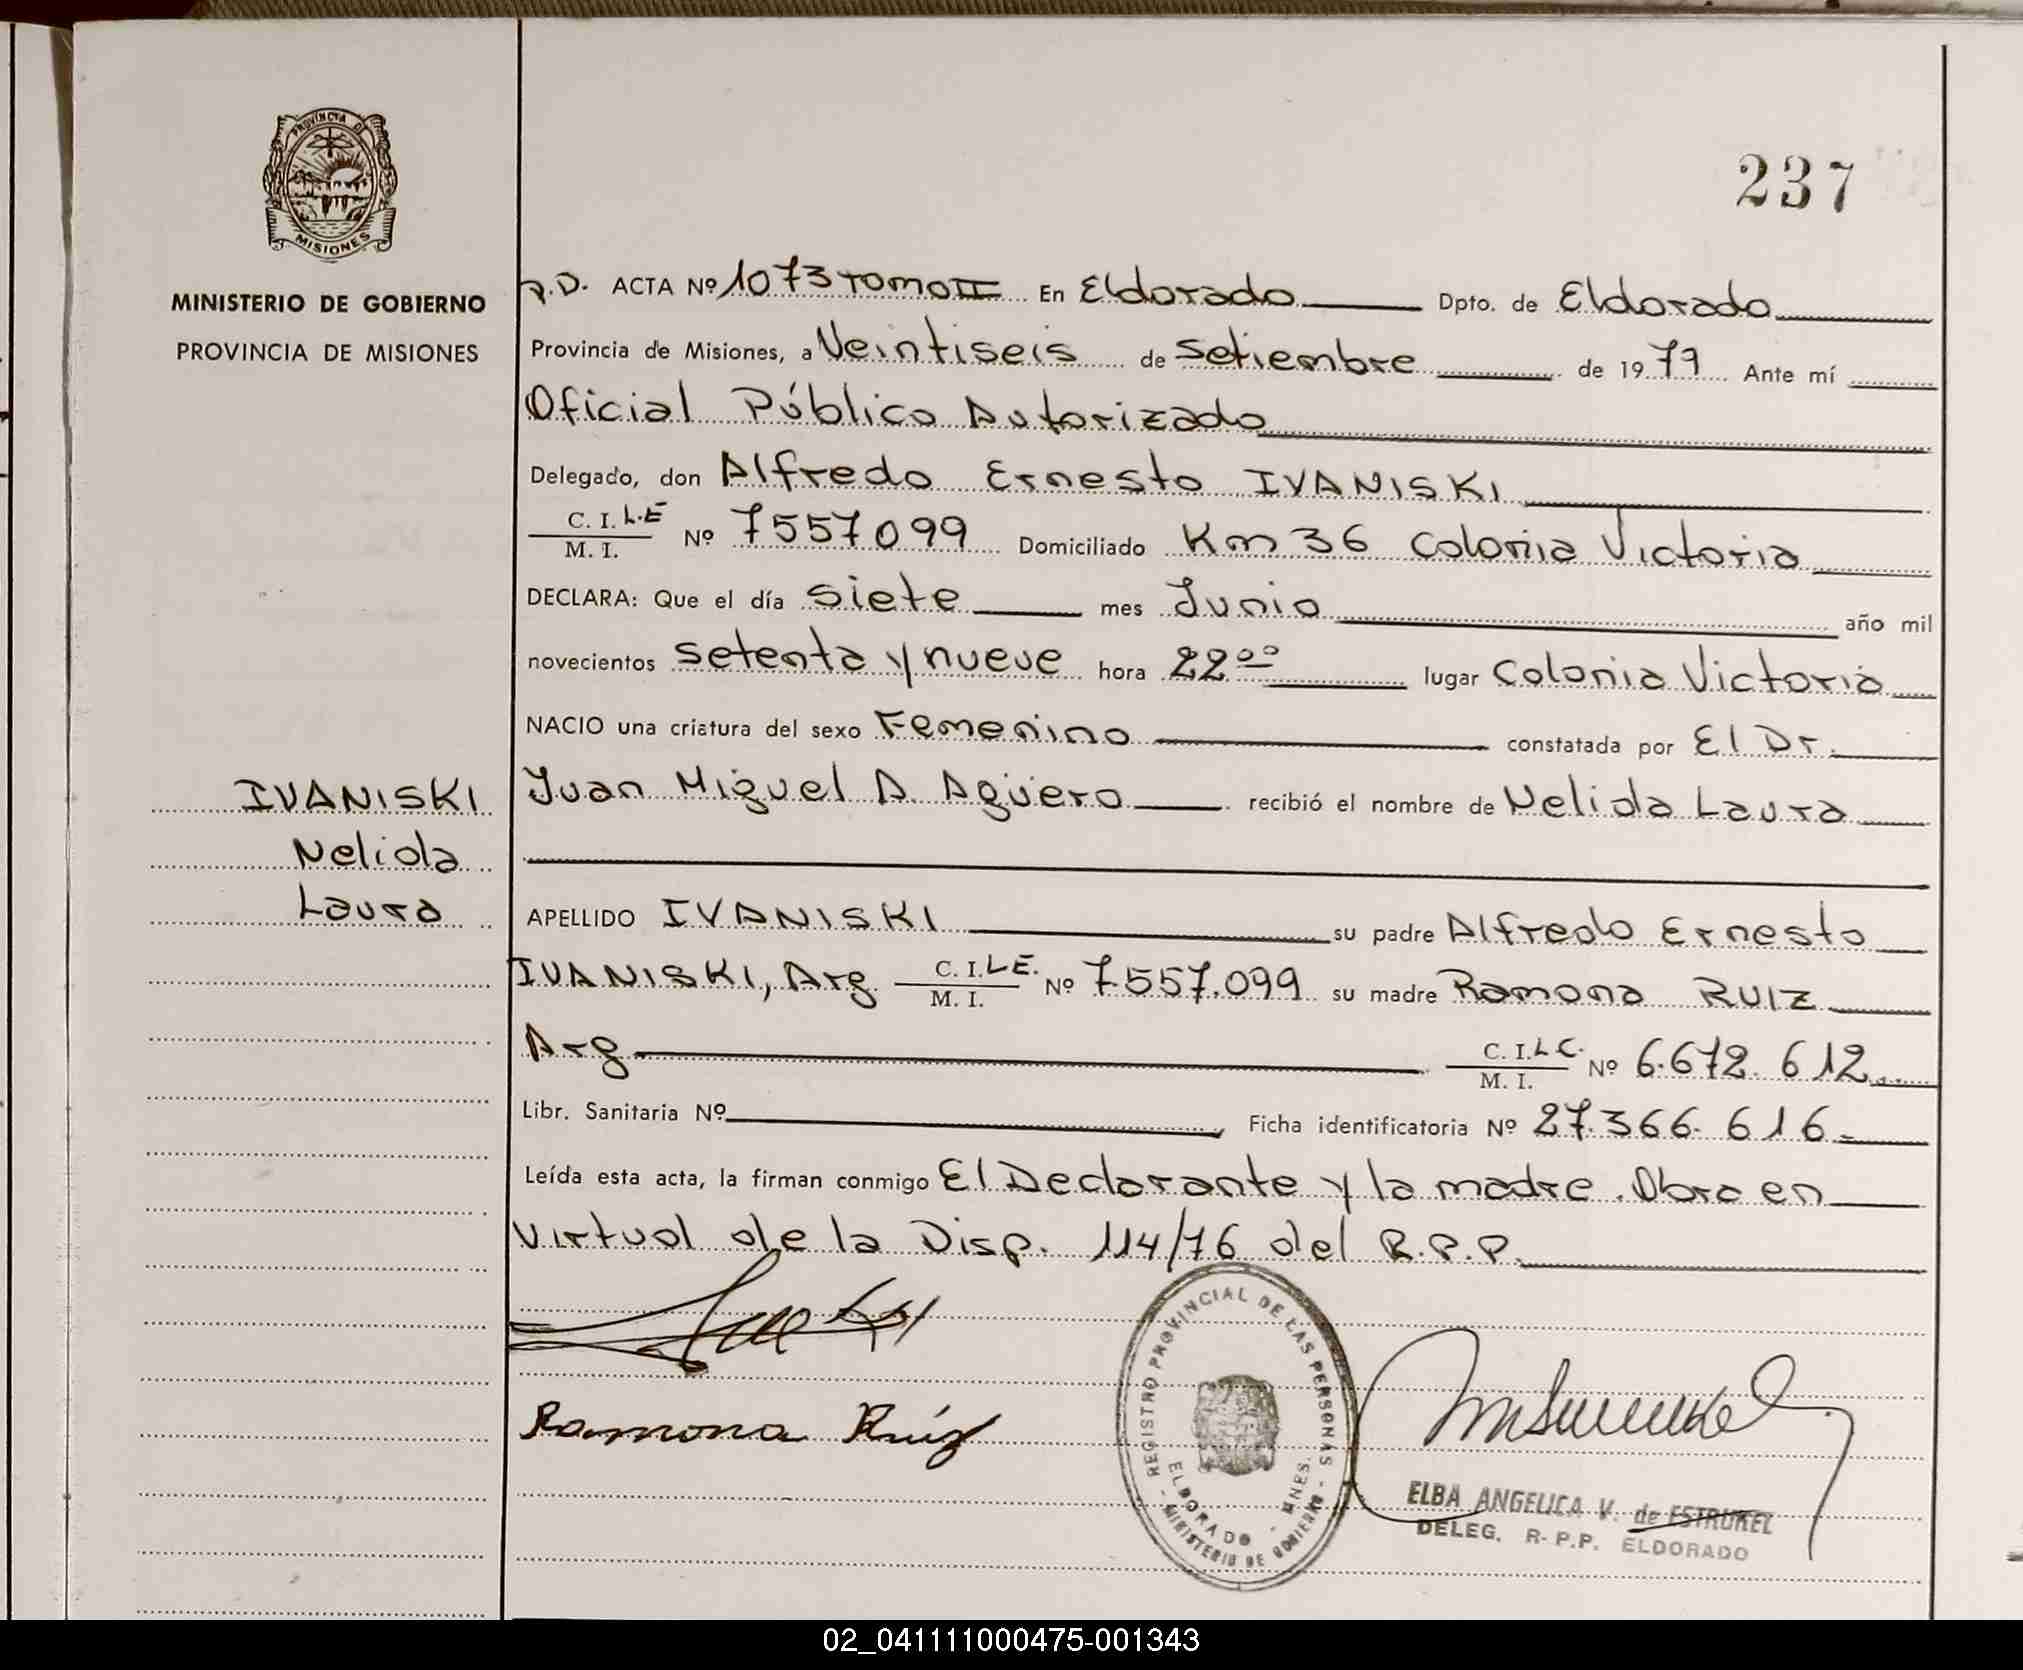 PROVINCIA DE
MISIONES
MINISTERIO DE GOBIERNO
PROVINCIA DE MISIONES
237
P.D. ACTA Nº 1073 TOMO II En Eldorado Dpto. de Eldorado
Provincia de Misiones, a Veintiseis de Setiembre de 1979 Ante mí
Oficial Público Autorizado
Delegado, don Alfredo Ernesto IVANISKI
C. I. L.E
M. I.
Nº 7557099 Domiciliado Km 36 Colonia Victoria
DECLARA: Que el día siete mes Junio año mil
novecientos setenta y nueve hora 22ºº lugar Colonia Victoria
NACIO una criatura del sexo Femenino constatada por El Dr.
Juan Miguel A. Agüero recibió el nombre de Nelida Laura
IVANISKI
Nelida
Laura
APELLIDO IVANISKI su padre Alfredo Ernesto
IVANISKI, Arg C. I. L.E. Nº 7.557.099 su madre Ramona RUIZ
M. I.
Arg C. I. L.C. Nº 6.672.612
M. I.
Libr. Sanitaria Nº Ficha identificatoria Nº 27.366.616.-
Leída esta acta, la firman conmigo El Declarante y la madre. Obra en
Virtual de la Disp. 114/76 del R.P.P.
Ramona Ruíz
REGISTRO PROVINCIAL DE LAS PERSONAS - MINISTERIO DE GOBIERNO -
ELDORADO - MNES.
ELBA ANGELICA V. de ESTRUKEL
DELEG. R-P.P. ELDORADO
02_041111000475-001343